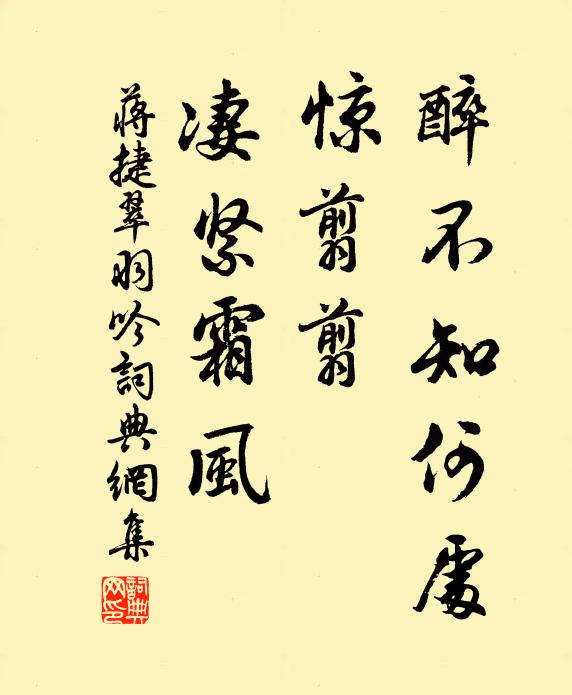 醉不知何處
惊翦翦
凄紧霜風
蔣捷翠羽吟詞典網集
詞典网印